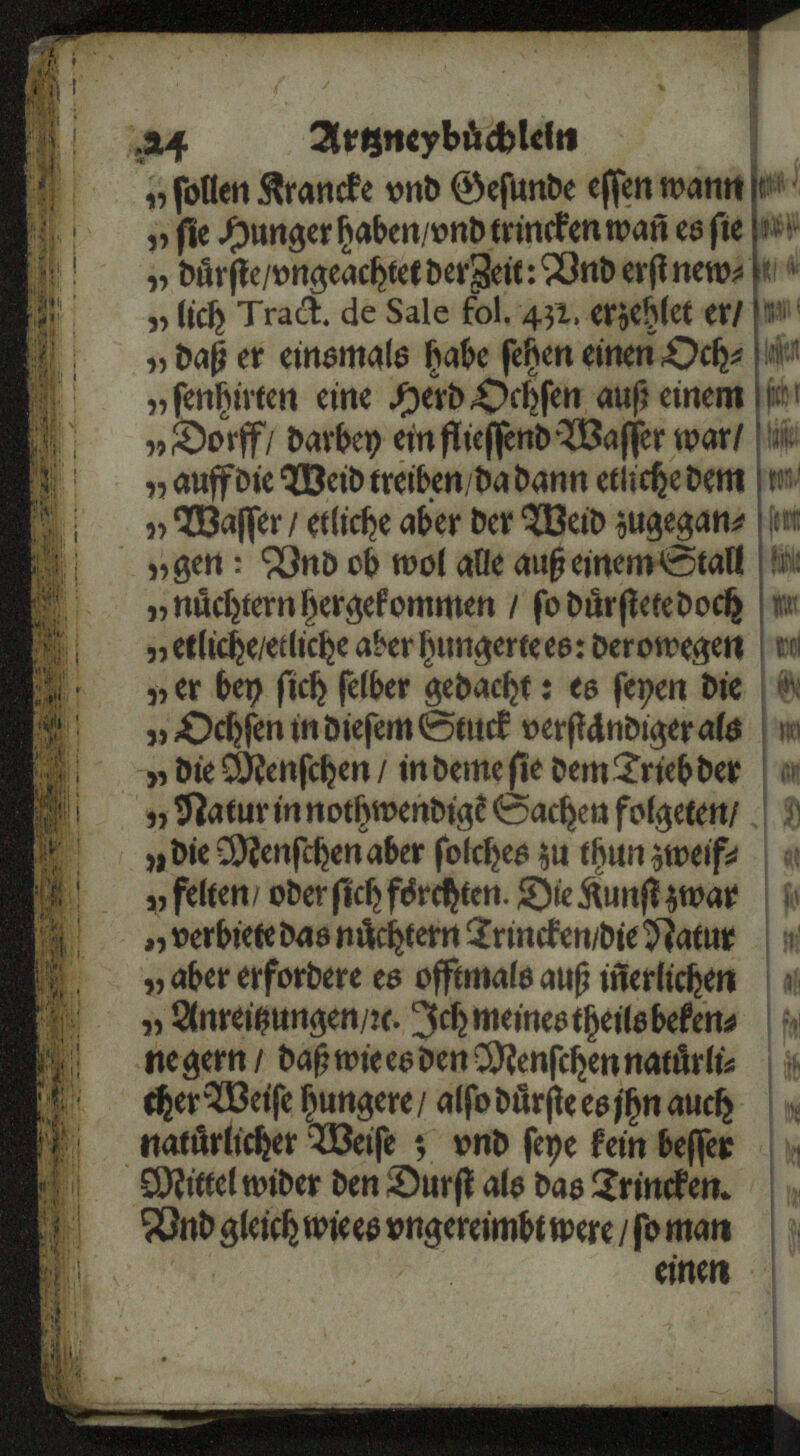 24 Artzneybuͤchlein
„ ſollen Krancke vnd Geſunde eſſen wann
„ ſie Hunger haben/vnd trincken wañ es ſie
„ duͤrſte/vngeachtet der Zeit: Vnd erſt new⸗
„ lich Tract. de Sale fol. 432. erzehlet er/
„ daß er einsmals habe ſehen einen Och⸗
„ ſenhirten eine Herd Ochſen auß einem
„ Dorff/ darbey ein flieſſend Waſſer war/
„ auff die Weid treiben/da dann etliche dem
„ Waſſer / etliche aber der Weid zugegan⸗
„ gen : Vnd ob wol alle auß einem Stall
„ nuͤchtern hergekommen / ſo duͤrſtete doch
„ etliche/etliche aber hungerte es: derowegen
„ er bey ſich ſelber gedacht : es ſeyen die
„ Ochſen in dieſem Stuck verſtaͤndiger als
„ die Menſchen / in deme ſie dem Trieb der
„ Natur in nothwendigẽ Sachen folgeten/
„ die Menſchen aber ſolches zu thun zweif⸗
„ felten/ oder ſich foͤrchten. Die Kunſt zwar
„ verbiete das nuͤchtern Trincken/die Natur
„ aber erfordere es offtmals auß iñerlichen
„ Anreitzungen/ꝛc. Ich meines theils beken⸗
ne gern / daß wie es den Menſchen natuͤrli⸗
cher Weiſe hungere / alſo duͤrſte es jhn auch
natuͤrlicher Weiſe ; vnd ſeye kein beſſer
Mittel wider den Durſt als das Trincken.
Vnd gleich wie es vngereimbt were / ſo man
einen